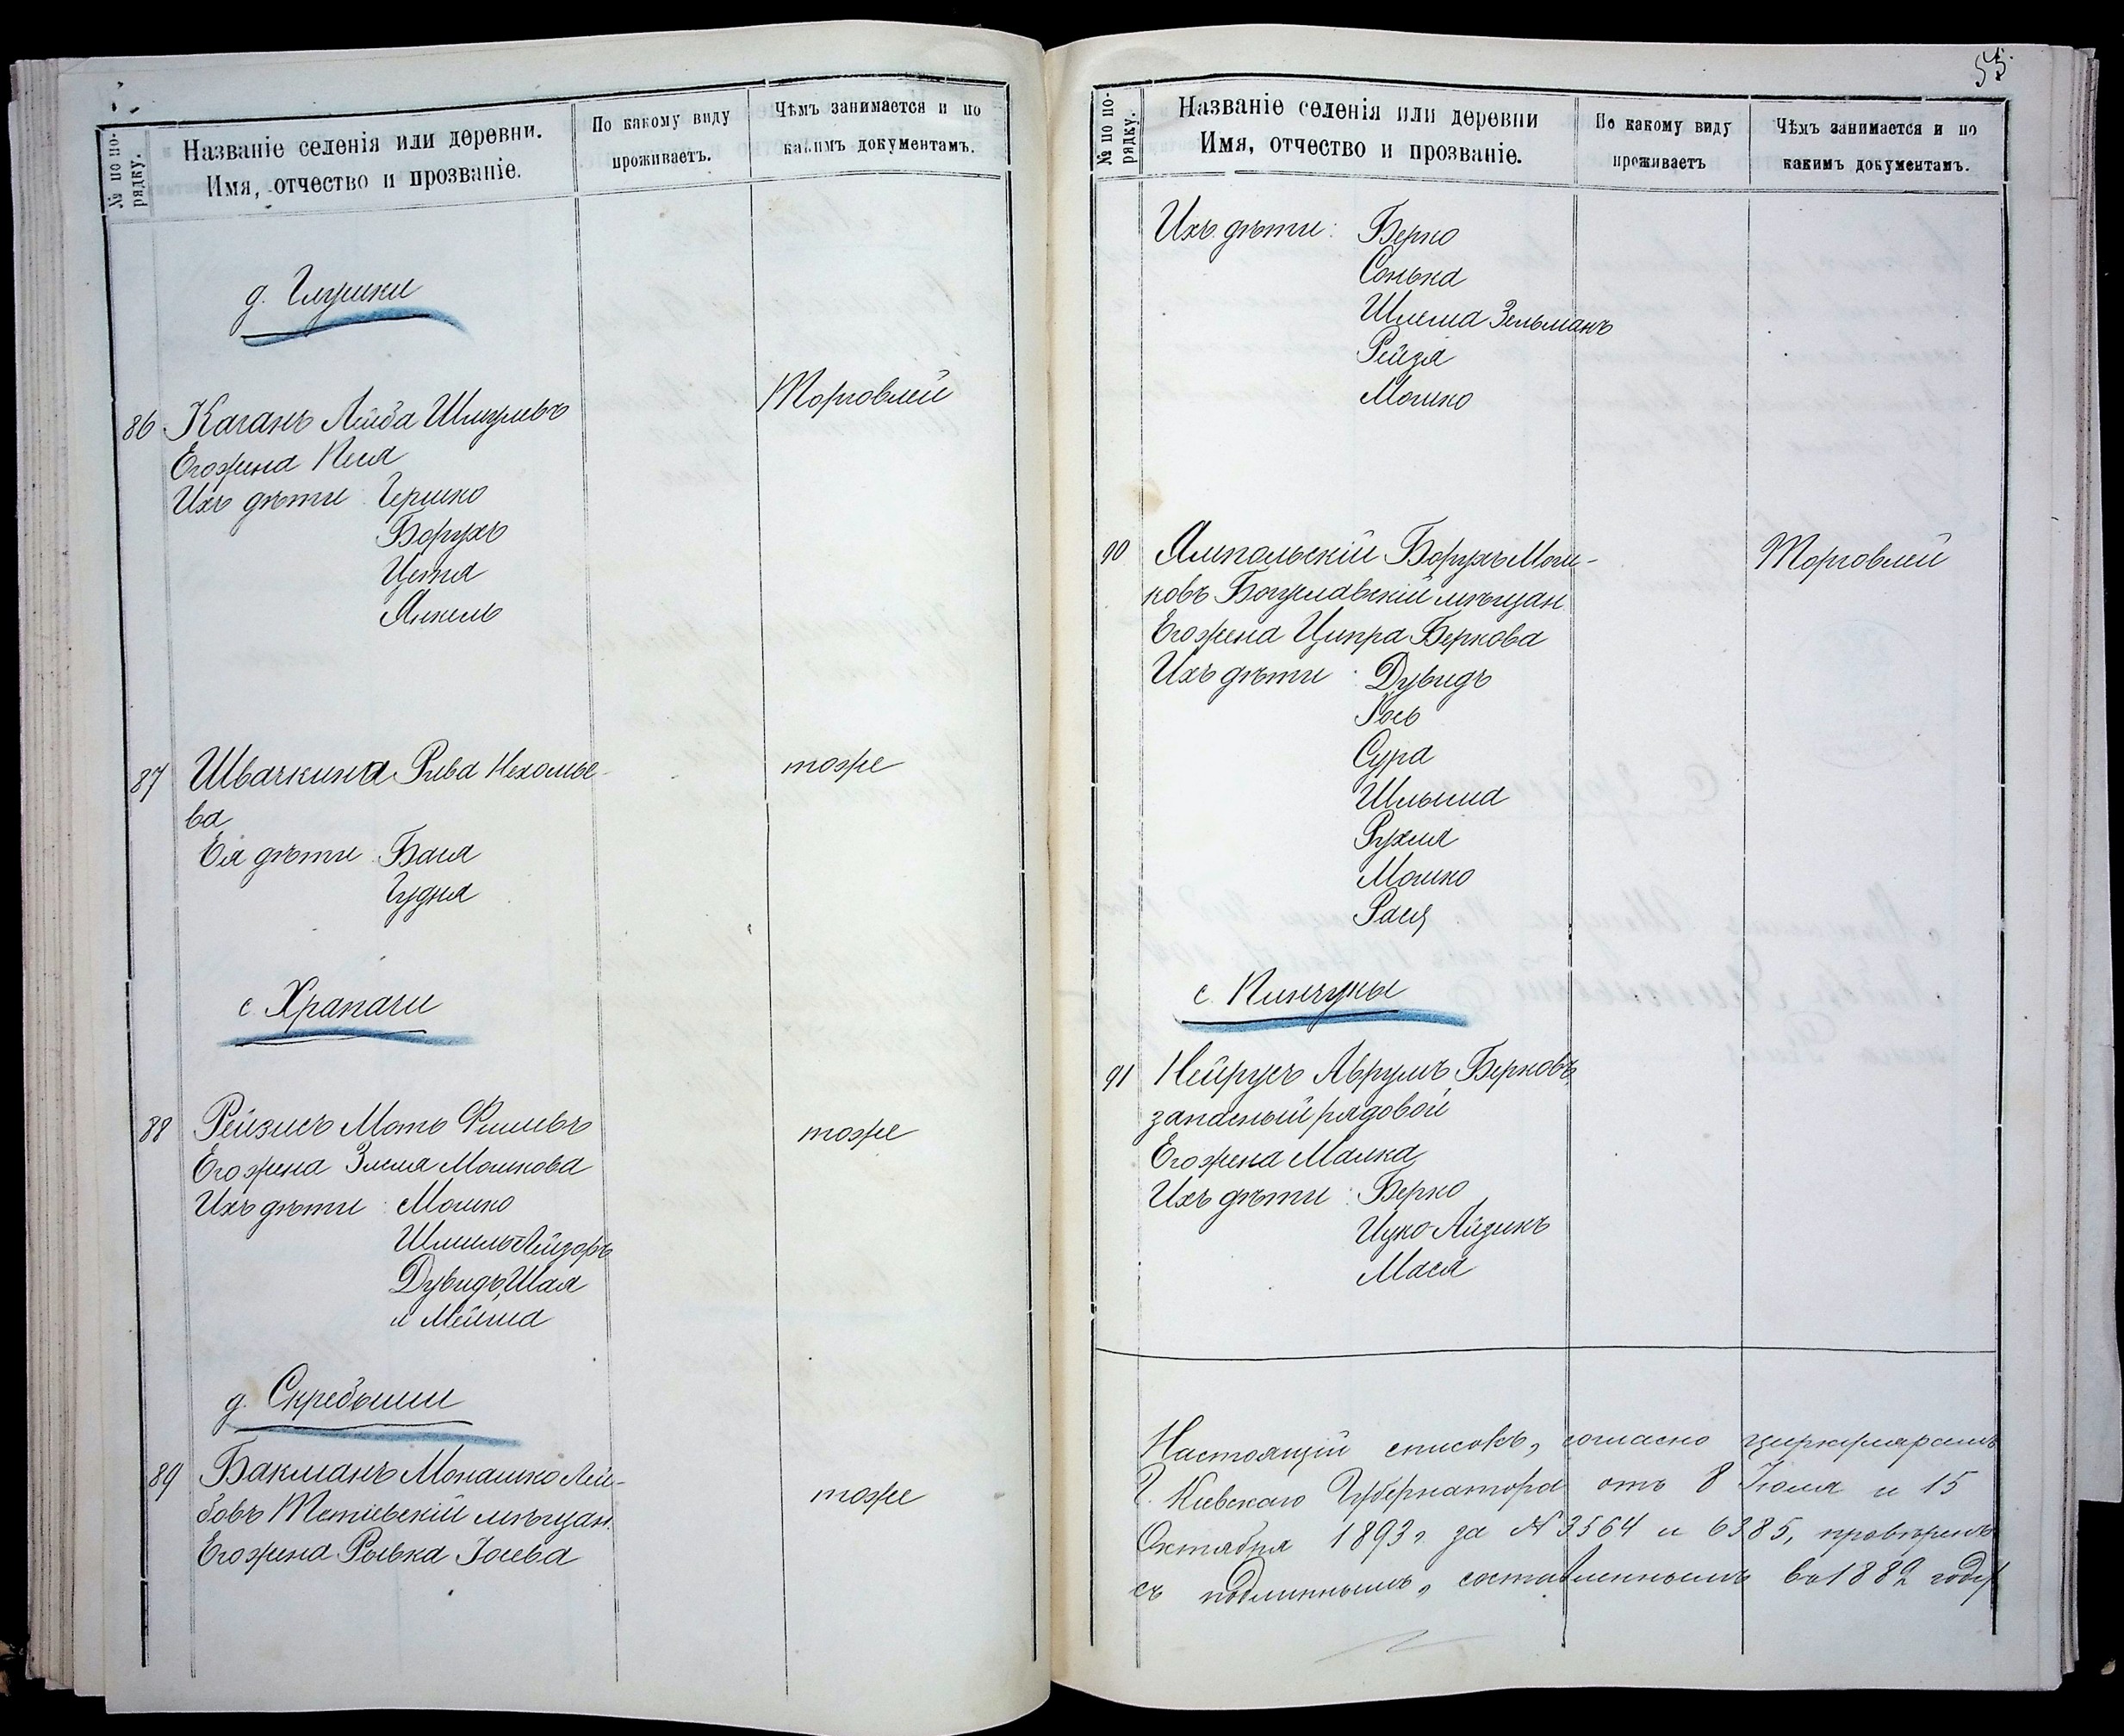 № по по-
рядку.
Названіе селенія или деревни.
Имя, отчество и прозваніе.
По какому виду
проживаетъ.
Чѣмъ занимается и по
какимъ документамъ.
д. Глушки
86 Каганъ Лейба Шмулевъ Торговлей
Его жена Песя
Ихъ дѣти Гершко
Борухъ
Цетя
Янкель
87 Швачкина Рива Нехомье- тоже
ва
Ея дѣти Бася
Гудня
с. Храпачи
88 Рейзисъ Мотъ Фишевъ тоже
Его жена Злотя Мошкова
Ихъ дѣти: Мошко
Шмиль Лейзоръ
Дувидъ, Шая
и Мейша
д. Скребыши
89 Бакманъ Монашко Лей- тоже
бовъ Тетіевскій мѣщан.
Его жена Рывка Іосева
55
№ по по-
рядку.
Названіе селенія или деревни
Имя, отчество и прозваніе.
По какому виду
проживаетъ
Чѣмъ занимается и по
какимъ документамъ.
Ихъ дѣти: Берко
Сонька
Шлема Зельманъ
Рейзя
Мошко
90 Ямпольскій Борухъ Мош- Торговлей
ковъ Богуславскій мѣщан
Его жена Ципра Беркова
Ихъ дѣти: Дувидъ
Іось
Сура
Шлыма
Рухля
Мошко
Рася
с. Пинчуки
91 Нейрусъ Аврумъ Берковъ
запасный рядовой
Его жена Малка
Ихъ дѣти: Берко
Ицко-Айзикъ
Мася
Настоящій списокъ, согласно циркулярамъ
Г. Кіевскаго Губернатора отъ 8 Іюля и 15
Октября 1893 г. за № 3564 и 6385, провѣренъ
съ подлиннымъ, составленнымъ въ 1882 году